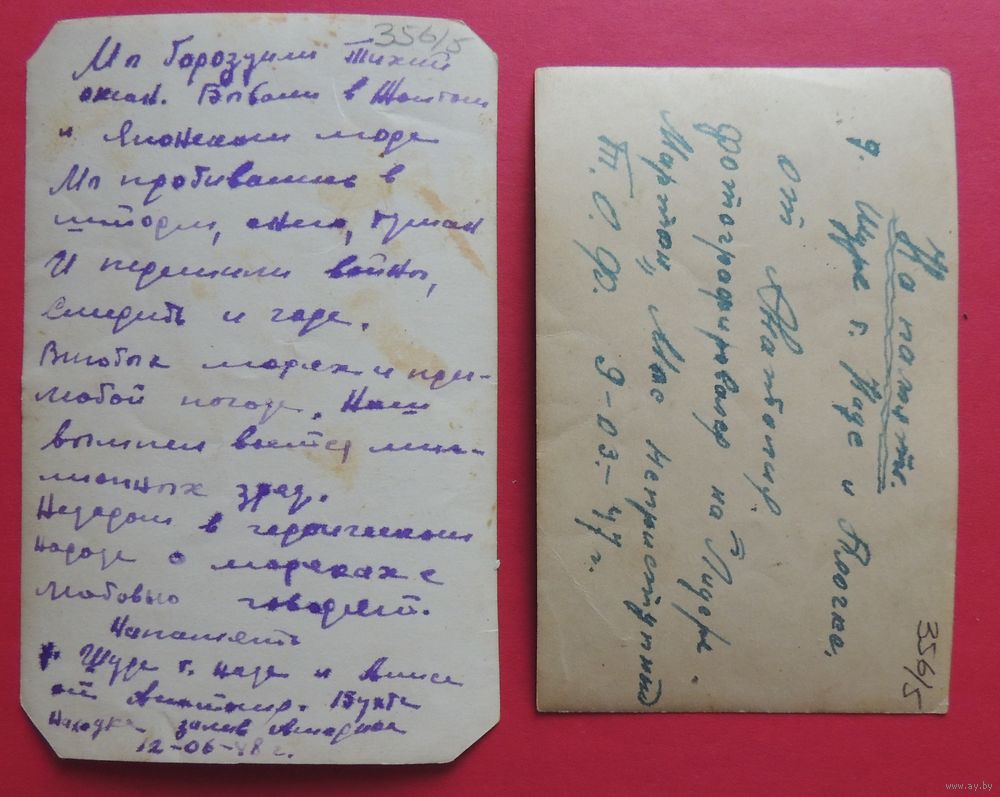 356/5
Мы бороздили Тихий
океан. Бывали в Желтом
и Японском море
Мы пробивались в
шторм, снег, туман
И пережили войны,
смерть и горе.
В любых морях и при
любой погоде. Наш
вымпел вьется мил-
лионных зред.
Недаром в героическом
народе о моряках с
любовью говорят.
Напамять
Шуре т. Наде и
от Бухта
Находка залив Америка
12-06-48 г.
На память.
д. Шуре т. Наде и
от
фотографировался на
Мартан,, Мыс неприступный
Т.О.Ф. 9-03-47 г.
356/5
www.ay.by